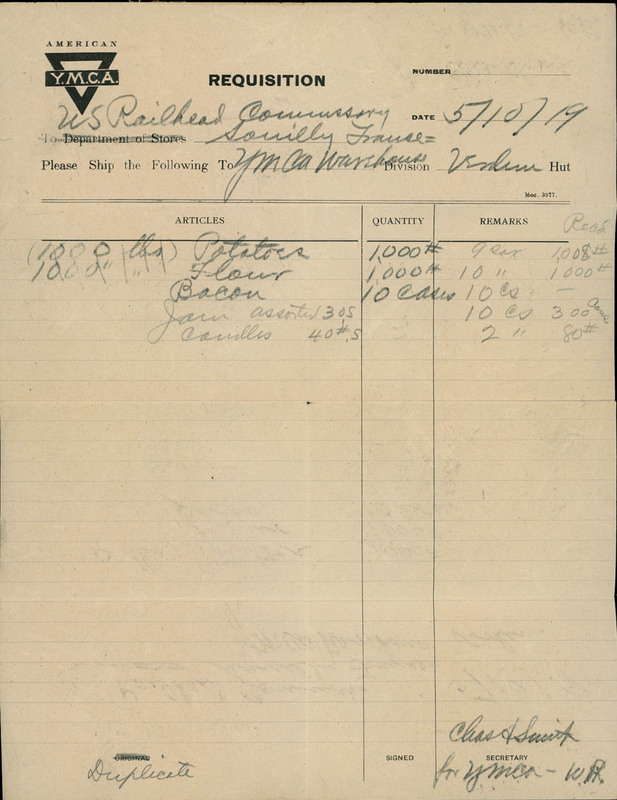 AMERICAN
Y.M.C.A.
REQUISITION
NUMBER
US Railhead Commissary
DATE 5/10/19
To Department of Stores Souilly France=
Please Ship the Following To YMCA Warehouse Division Verdun Hut
Mec. 3077.
ARTICLES QUANTITY REMARKS Recd
(1000 lbs) Potatoes 1,000# 9 sax 1,008#
1000 " " Flour 1,000# 10 " 1000#
Bacon 10 Cases 10 Cs —
Jam assorted 30s 10 Cs 300 Cans
Candles 40#s 2 " 80#
Chas A Smith
ORIGINAL SIGNED SECRETARY
Duplicate for YMCA - W.H.